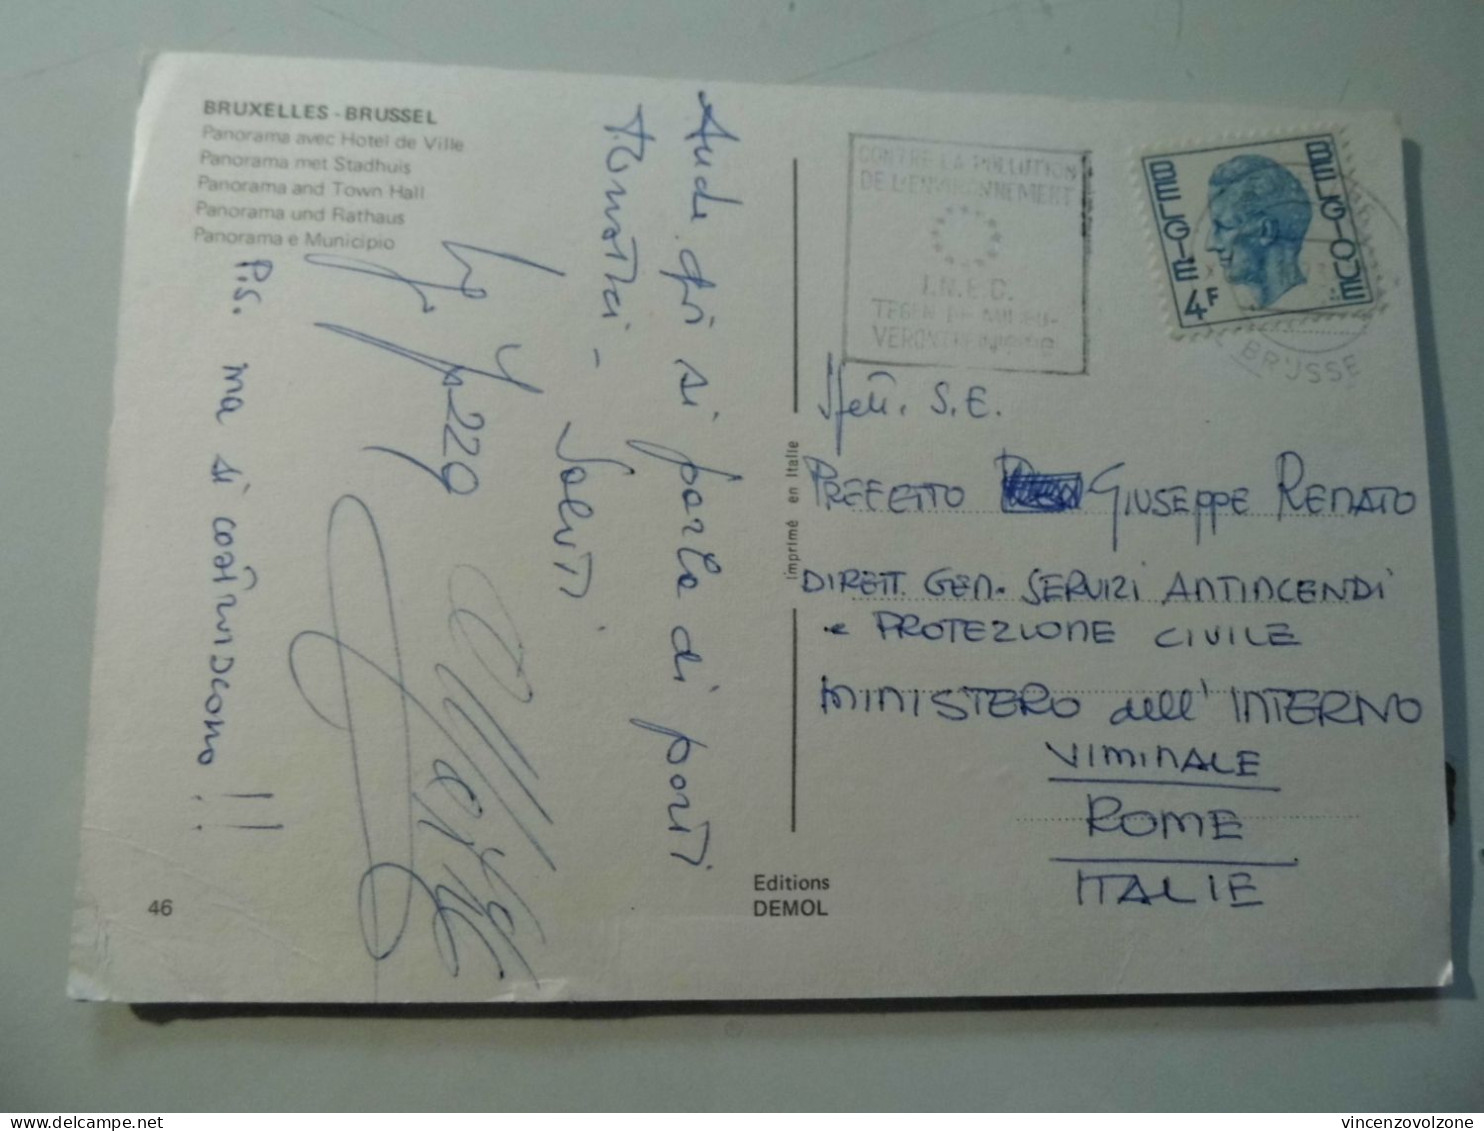 BRUXELLES - BRUSSEL
Panorama avec Hotel de Ville
Panorama met Stadhuis
Panorama and Town Hall
Panorama und Rathaus
Panorama e Municipio
Aude qui si parla di ponti
termici -
Saluti
P.S. ma si costruiscono !!
46
Editions
DEMOL
imprimé en Italie
CONTRE LA POLLUTION
DE L'ENVIRONNEMENT
I.N.E.C.
TEGEN DE MILIEU-
VERONTREINIGING
BELGIE BELGIQUE
4F
BRUSSE
Spett. S.E.
PREFETTO GIUSEPPE RENATO
DIRETT. GEN. SERVIZI ANTINCENDI
e PROTEZIONE CIVILE
MINISTERO dell'INTERNO
VIMINALE
ROME
ITALIE
delcampe.net
vincenzovolzone